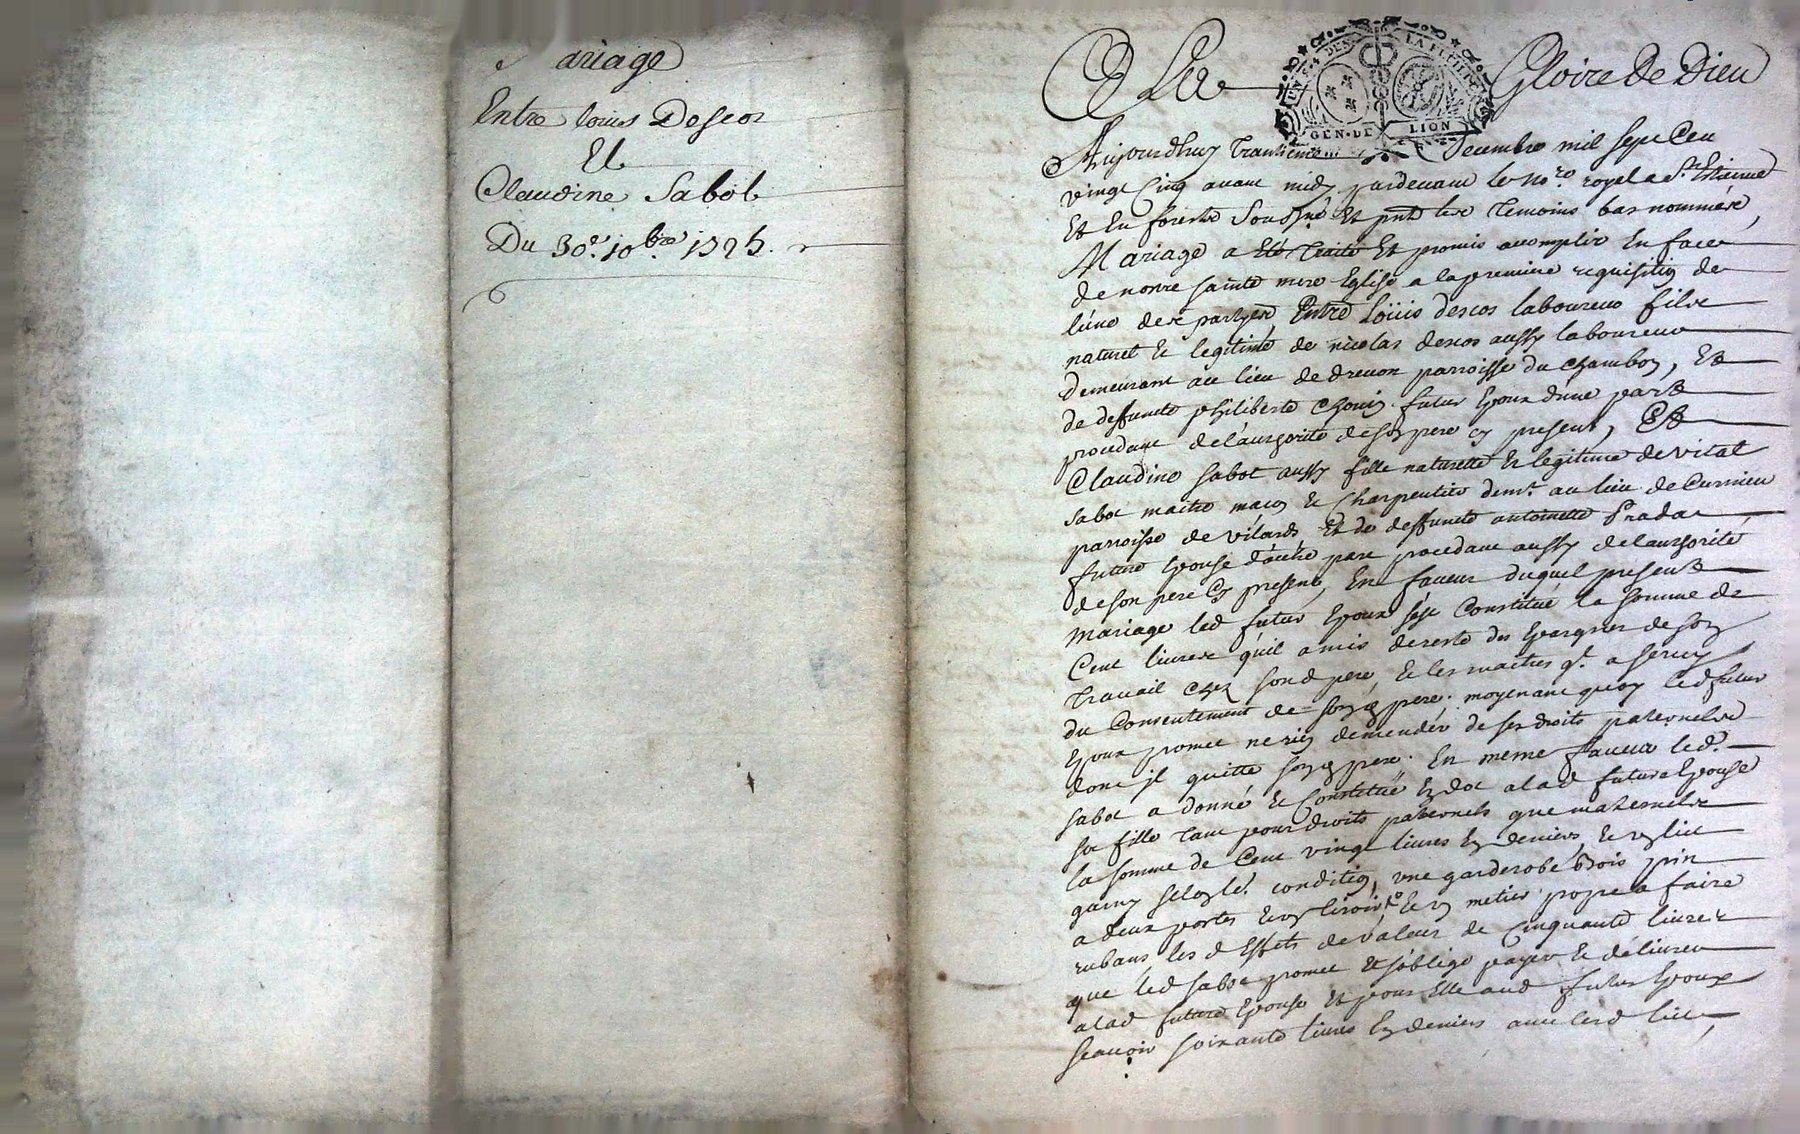 Mariage
Entre louis Descos
Et
Claudine Sabot
Du 30e. 10bre 1725.
A La Gloire de Dieu
GEN. DE LION
Aujourdhuy Trantieme Decembre mil sept Cen
vingt Cinq avant midy pardevant le nore. royal a St. Etienne
Et En forestz Sousné. Et pnts les Temoins bas nommés,
Mariage a Eté Traité Et promis acomplir En face
de notre sainte mere Eglise a la premiere requisition de
lúne des partyes, Entre Loüis descos laboureur fils
naturel et legitime de nicolas descos aussy laboureur
demeurant au lieu de drevon parroisse du chambon, Et
de deffuncte philiberte Chouin futur Epoux dúne part
procedant de láuthorité de son pere cy present, Et
Claudine sabot aussy fille naturelle et legitime de vital
sabot maitre macon et Charpentier demt. au lieu de Curnieu
parroisse de vilards Et de deffuncte antoinette Pradat
future Epouse dáutre part procedant aussy de lauthorité
de son pere Cy present, En faveur duquel present
mariage led futur Epoux sést Constitué la somme de
Cent livres qúil a mis de reste des Epargnes de son
Travail chez sond pere, et les maitres qt. a servy
du Consentement de sond pere; moyenant quoy led futur
Epoux promet ne rien demender de ses droits paternels
dont jl quitte sond pere. En meme faveur led.
sabot a donné et Constitué En dot a lad future Epouse
sa fille tant pour droits paternels que maternels
la somme de Cent vingt livres En deniers, et vn lict
garny selon lé. condition, vne garderobe bois pin
a deux portes et vn tiroir, Et vn metier propre a faire
rubans les d Effets de valeur de Cinquante livres
que led sabot promet et soblige payer et delivrer
a lad future Epouse et pour Elle aud futur Epoux
scavoir soixante livres En deniers avec lesd lict,